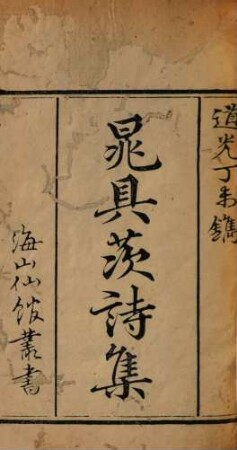 道光丁未鐫
晁具茨詩集
海山仙館叢書